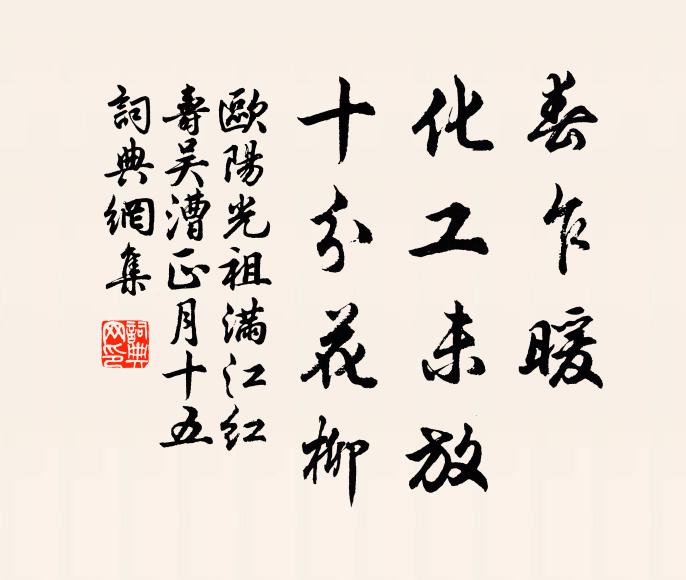 春乍暖
化工未放
十分花柳
歐陽光祖滿江红
壽吴漕正月十五
詞典網集
詞典网印